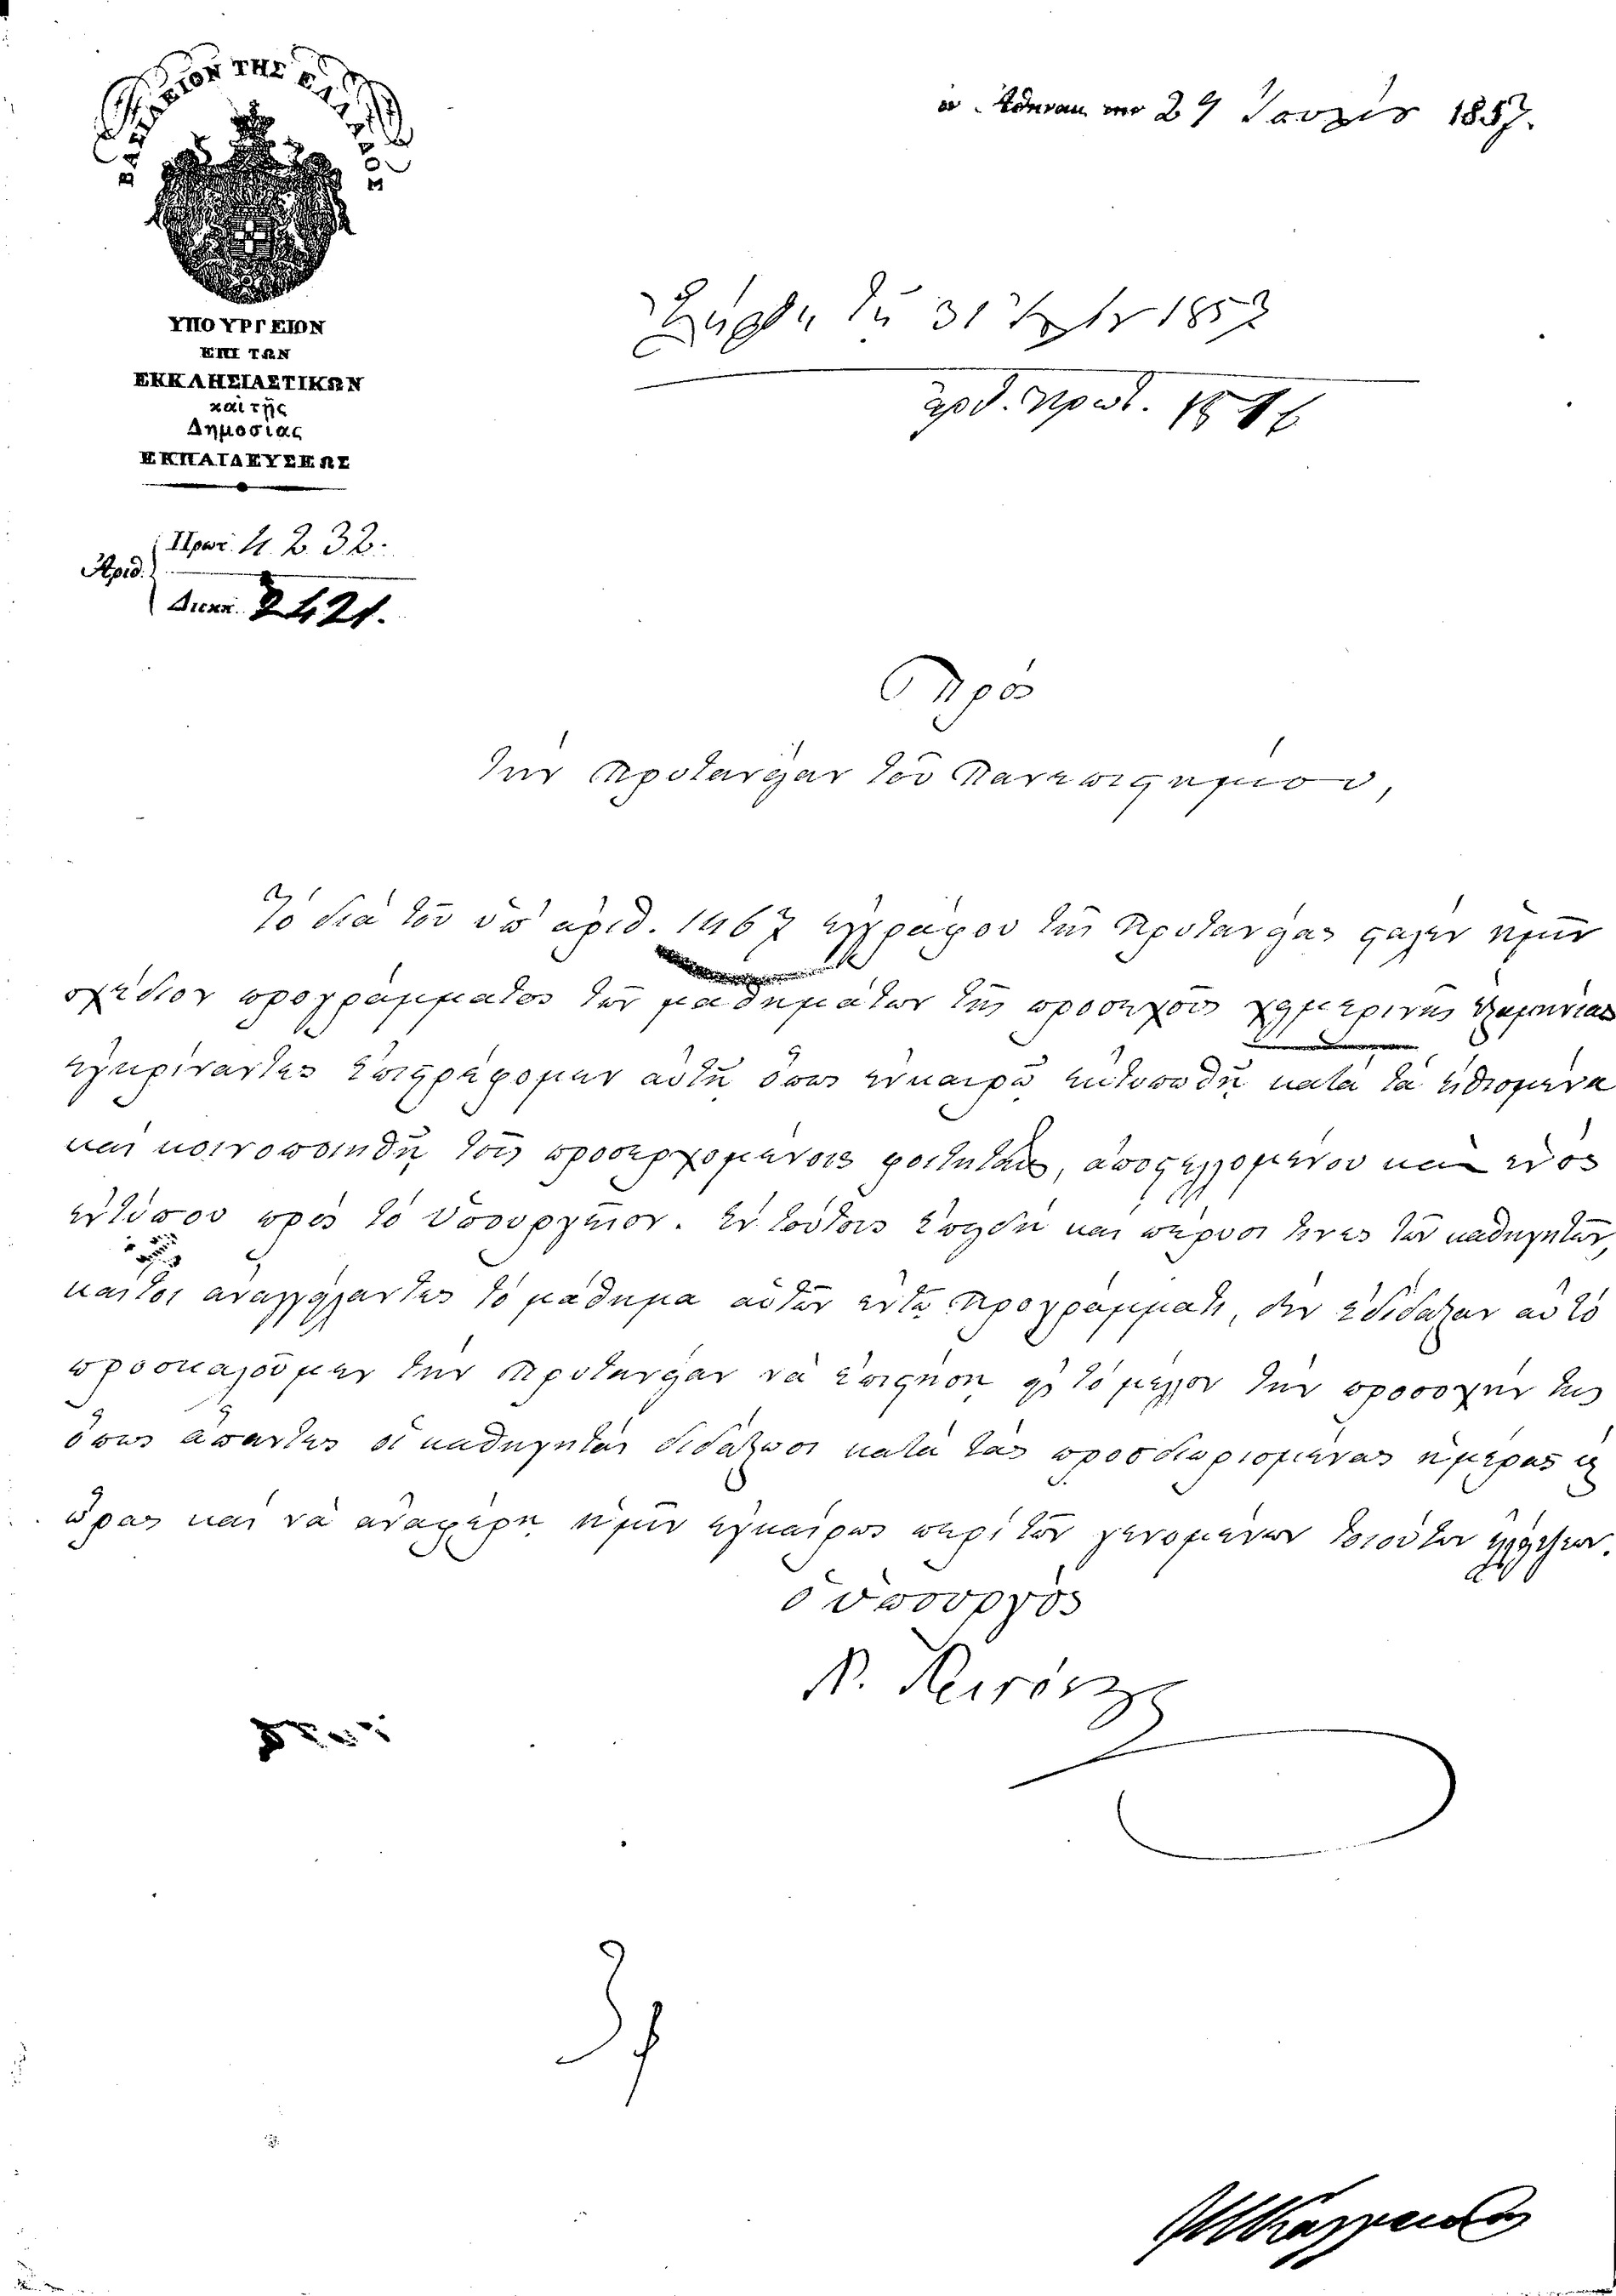 ΒΑΣΙΛΕΙΟΝ ΤΗΣ ΕΛΛΑΔΟΣ
ΥΠΟΥΡΓΕΙΟΝ
ΕΠΙ ΤΩΝ
ΕΚΚΛΗΣΙΑΣΤΙΚΩΝ
καὶ τῆς
Δημοσίας
ΕΚΠΑΙΔΕΥΣΕΩΣ
Ἀριθ.
Πρωτ. 4232.
Διεκπ. 2421.
ἐν Ἀθήναις τὴν 29 Ἰουλίου 1857.
Ἐλήφθη τῇ 31 1857
ἀριθ. Πρωτ.
Πρὸς
τὴν Πρυτανείαν τοῦ Πανεπιστημίου,
Τὸ διὰ τοῦ ὑπ' ἀριθ. 1467 ἐγγράφου τῆς Πρυτανείας σταλὲν ἡμῖν
σχέδιον προγράμματος τῶν μαθημάτων τῆς προσεχοῦς χειμερινῆς ἑξαμηνίας
ἐγκρίναντες ἐπιστρέφομεν αὐτῇ ὅπως ἐγκαίρως ἐκτυπωθῇ κατὰ τὰ εἰθισμένα
καὶ κοινοποιηθῇ τοῖς προσερχομένοις φοιτηταῖς, ἀποστελλομένου καὶ ἑνὸς
ἐντύπου πρὸς τὸ Ὑπουργεῖον. Ἐν τούτοις ἐπειδὴ καὶ πέρυσι τινὲς τῶν καθηγητῶν,
καίτοι ἀναγγείλαντες τὸ μάθημα αὐτῶν ἐν τῷ Προγράμματι, δὲν ἐδίδαξαν αὐτὸ
προσκαλοῦμεν τὴν Πρυτανείαν νὰ ἐπιστήσῃ εἰς τὸ μέλλον τὴν προσοχήν της
ὅπως ἅπαντες οἱ καθηγηταὶ διδάξωσι κατὰ τὰς προσδιωρισμένας ἡμέρας καὶ
ὥρας καὶ νὰ ἀναφέρῃ ἡμῖν ἐγκαίρως περὶ τῶν γενομένων τοιούτων ἐλλείψεων.
ὁ Ὑπουργὸς